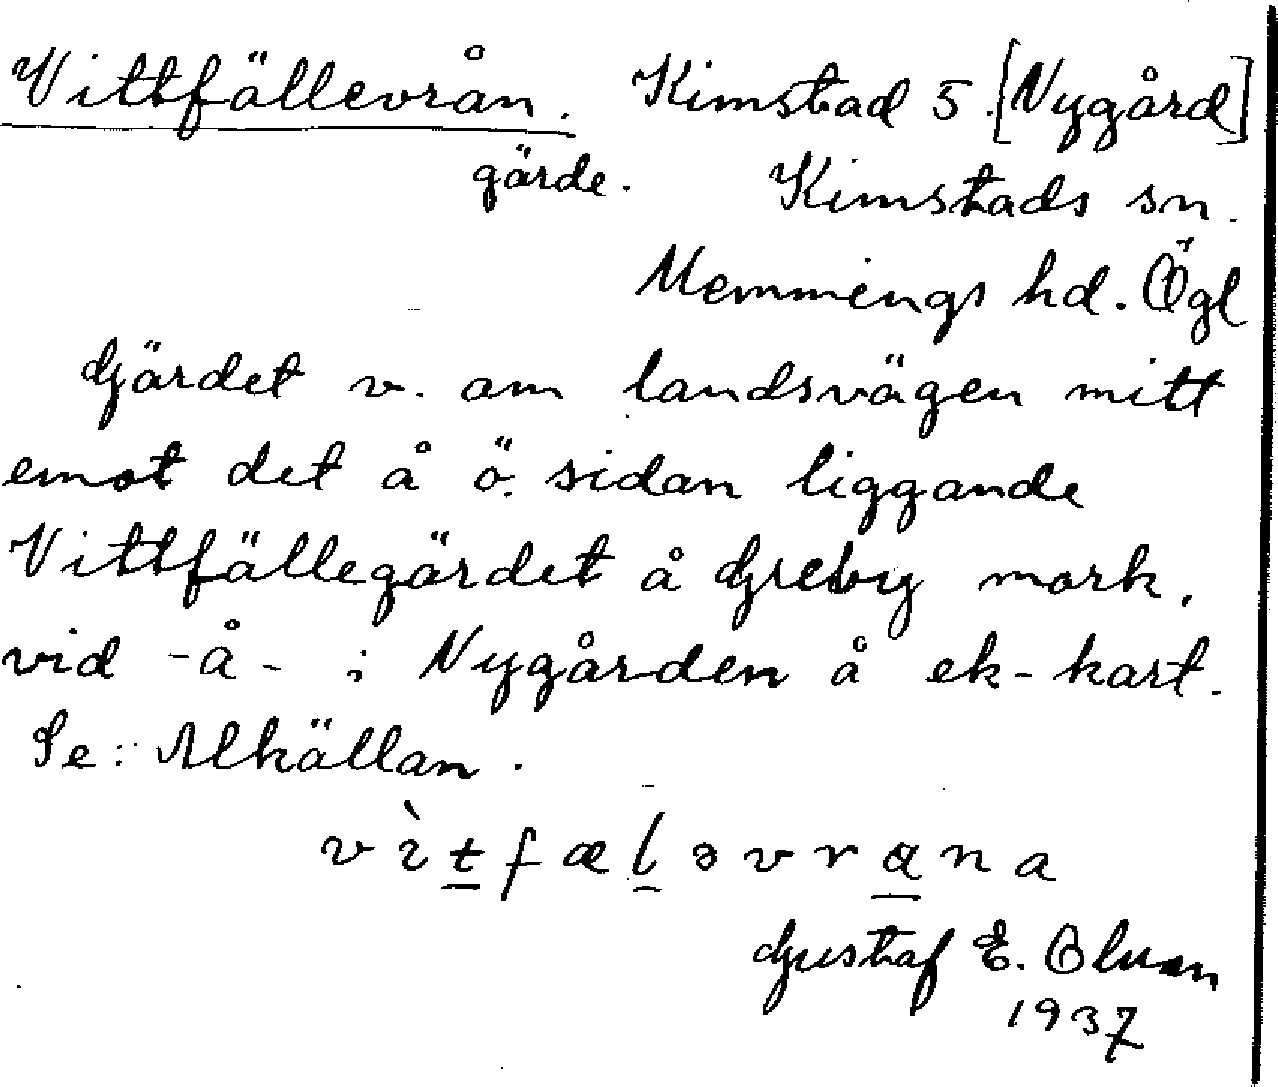 Vittfällevrån. Kimstad 5. [Nygård]
gärde. Kimstads sn.
Memmings hd. Ögl
Gärdet v. om landsvägen mitt
emot det å ö. sidan liggande
Vittfällegärdet å Greby mark,
vid -å- i Nygården å ek-kart.
Se: Alkällan.
vìtfælǝvrɑna
Gustaf E. Olsson
1937